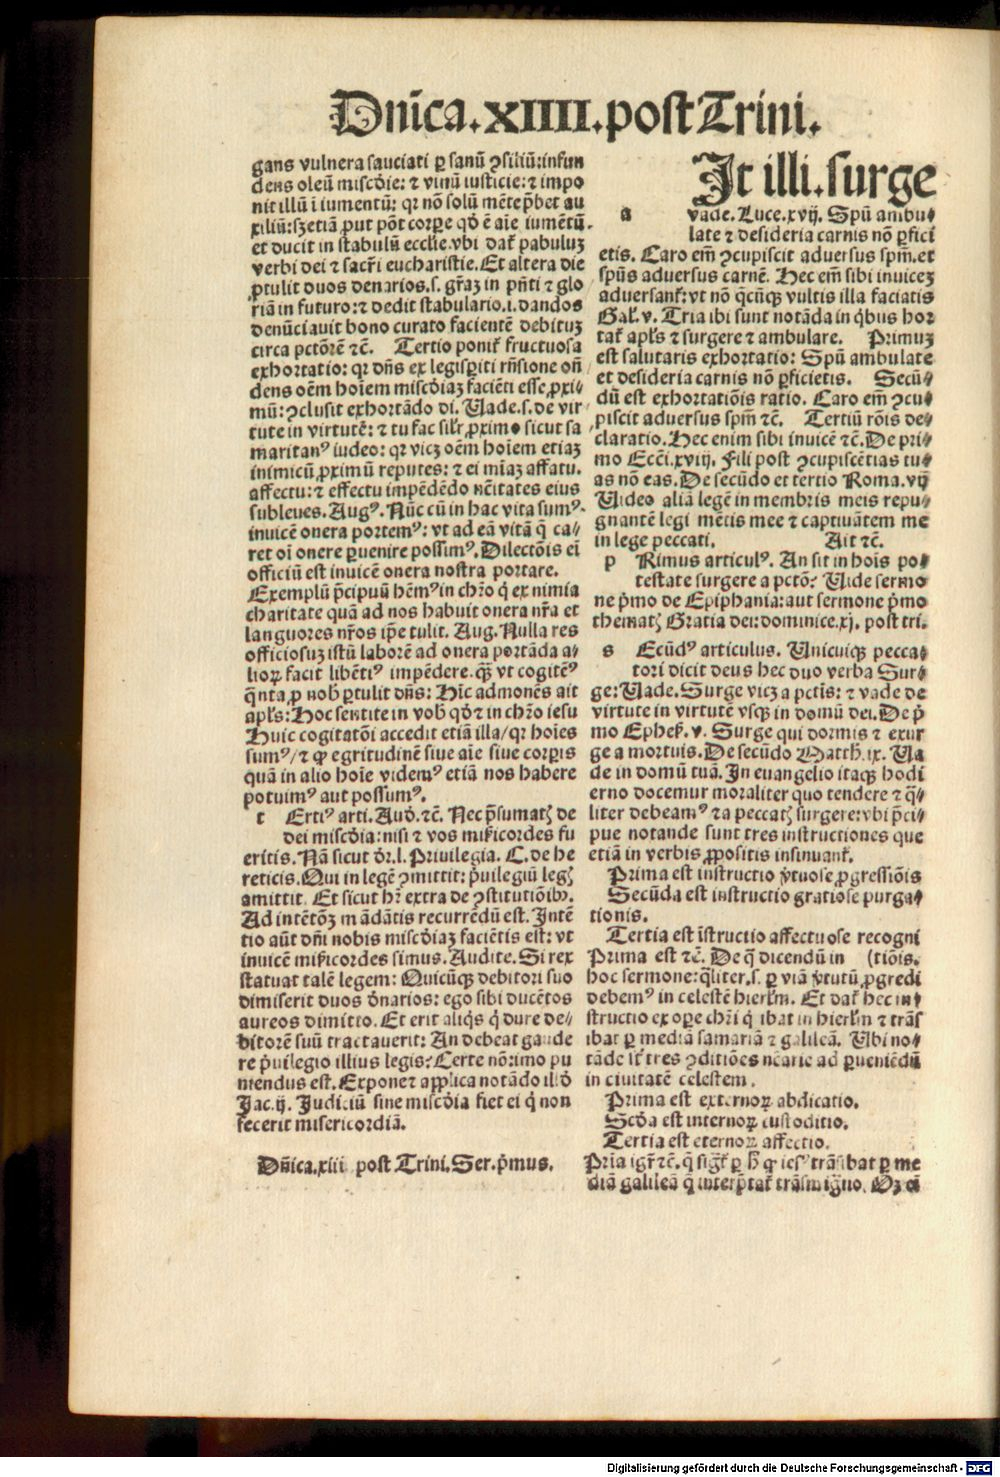 Dnīca.XIIII.post Trini.
gans vulnera sauciati ꝑ sanū ꝯsiliū:infun
dens oleū miscd̓ie: ⁊ vinū iusticie:⁊ impo
nit illū ī iumentū: qꝛ nō solū mēte p̄bet au
xiliū:sꝫ etiā ꝓut pōt corꝑe qd̓ ē aīe iumētū.
et ducit in stabulū ecclīe.vbi dat̄ pabuluꝫ
verbi dei ⁊ sacr̄i eucharistie.Et altera die
ꝓtulit duos denarios.s. gr̄aꝫ in pn̄ti ⁊ glo
riā in futuro:⁊ dedit stabulario.i.dandos
denūciauit bono curato facientē debituꝫ
circa pctōrē ⁊c̄. Tertio ponit̄ fructuosa
exhortatio: qꝛ dn̄s ex legisꝑiti rn̄sione on̄
dens oēm hoīem miscd̓iaꝫ faciēti esse ꝓxi⸗
mū:ꝯclusit exhortādo di. Uade.s.de vir
tute in virtutē: ⁊ tu fac sil̓r ꝓximo sicut sa
maritanꝰ iudeo: qꝛ vicꝫ oēm hoīem etiaꝫ
inimicū ꝓximū reputes: ⁊ ei mīaꝫ affatu.
affectu:⁊ effectu impēdēdo nēitates eius
subleues.Augꝰ. Nūc cū in hac vita sumꝰ.
inuicē onera portemꝰ: vt ad eā vitā q̄ ca⸗
ret oī onere ꝑuenire possimꝰ.Dilectōis ei
officiū est inuicē onera nostra portare.
Exemplū p̄cipuū hēmꝰ in chr̄o q̓ ex nimia
charitate quā ad nos habuit onera nr̄a et
languores nr̄os ip̄e tulit. Aug.Nulla res
officiosuꝫ istū laborē ad onera portāda a⸗
lioꝝ facit libētiꝰ impēdere.qꝫ̄ vt cogitēꝰ
q̄nta ꝓ nob̓ ꝑtulit dn̄s: Hīc admonēs ait
apl̓s:Hoc sentite in vob̓ qd̓ ⁊ in chr̄o iesu
Huic cogitatōi accedit etiā illa/qꝛ hoīes
sumꝰ/⁊ ꝙ egritudinē siue aīe siue corꝑis
quā in alio hoīe videmꝰ etiā nos habere
potuimꝰ aut possumꝰ.
t Ertiꝰ arti.Aud̓.⁊c̄. Nec p̄sumatꝫ de
dei miscd̓ia:nisi ⁊ vos mīcordes fu
eritis.Nā sicut d̓r.l.Priuilegia. C.de he
reticis.Qui in legē ꝯmittit: p̓uilegiū legꝫ
amittit. Et sicut hr̄ extra de ꝯstitutiōibꝫ.
Ad intētōꝫ mādātis recurrēdū est.Intē
tio aūt dn̄i nobis miscd̓iaꝫ faciētis est: vt
inuicē mīcordes simus.Audite.Si rex
statuat talē legem: Quicūqꝫ debitori suo
dimiserit duos d̓narios: ego sibi ducētos
aureos dimitto.Et erit aliqs q̓ dure de⸗
bitorē suū tractauerit: An debeat gaude
re p̓uilegio illius legis: Certe nō:imo pu
niendus est.Expone ⁊ applica notādo illd̓
Jac.ij. Judiciū sine miscd̓ia fiet ei q̓ non
fecerit misericordiā.
Dn̄ica.xiii post Trini.Ser.p̓mus.
It illi.surge
a vade.Luce.xvij. Spū ambu⸗
late ⁊ desideria carnis nō ꝑfici
etis. Caro em̄ ꝯcupiscit aduersus spm̄.et
spūs aduersus carnē. Hec em̄ sibi inuiceꝫ
aduersant̄:vt nō qcūqꝫ vultis illa faciatis
Gal̓.v. Tria ibi sunt notāda in qbus hor
tat̄ apl̓s ⁊ surgere ⁊ ambulare. Primuꝫ
est salutaris exhortatio: Spū ambulate
et desideria carnis nō ꝑficietis. Secū⸗
dū est exhortatiōis ratio. Caro em̄ ꝯcu⸗
piscit aduersus spm̄ ⁊c̄. Tertiū rōis de⸗
claratio.Hec enim sibi inuicē ⁊c̄.De pri⸗
mo Ecci.xviij. Fili post ꝯcupiscētias tu⸗
as nō eas.De secūdo et tertio Roma.vij
Uideo aliā legē in membris meis repu⸗
gnantē legi mētis mee ⁊ captiuātem me
in lege peccati. Ait ⁊c̄.
p Rimus articulꝰ. An sit in hoīs po⸗
testate surgere a pctō: Uide sermo
ne p̓mo de Epiphania:aut sermone p̓mo
thematꝫ Gratia dei:dominice.xj. post tri.
s Ecūdꝰ articulus. Unicuiqꝫ pecca⸗
tori dicit deus hec duo verba Sur⸗
ge:Uade.Surge vicꝫ a pctīs: ⁊ vade de
virtute in virtutē vsqꝫ in domū dei.De p̓
mo Ephes̄.v. Surge qui dormis ⁊ exur
ge a mortuis.De secūdo Matth.ix. Ua
de in domū tuā. In euangelio itaqꝫ hodi
erno docemur moraliter quo tendere ⁊ q̄⸗
liter debeamꝰ ⁊ a peccatꝫ surgere:vbi p̄ci⸗
pue notande sunt tres instructiones que
etiā in verbis ꝓpositis insinuant̄.
Prima est instructio v̓tuose ꝓgressiōis
Secūda est instructio gratiose purga⸗
tionis.
Tertia est īstructio affectuose recogni
Prima est ⁊c̄. De q̄ dicendū in (tiōis.
hoc sermone:qliter.s. ꝑ viā v̓tutū ꝓgredi
debemꝰ in celestē hierl̓m. Et dat̄ hec in⸗
structio ex oꝑe chr̄i q̓ ibat in hierl̓m ⁊ trās
ibat ꝑ mediā samariā ⁊ galileā. Ubi no⸗
tāde st̄ tres ꝯditiōes nc̄arie ad ꝑueniēdū
in ciuitatē celestem.
Prima est externoꝝ abdicatio.
Scd̓a est internoꝝ custoditio.
Tertia est eternoꝝ affectio.
Pria igr̄ ⁊c̄. q̄ sigt̄ ꝑ h̓ ꝙ iesꝰ trāsibat ꝑ me
diā galileā q̄ interp̄tat̄ trāsmigtio.
Digitalisierung gefördert durch die Deutsche Forschungsgemeinschaft - DFG